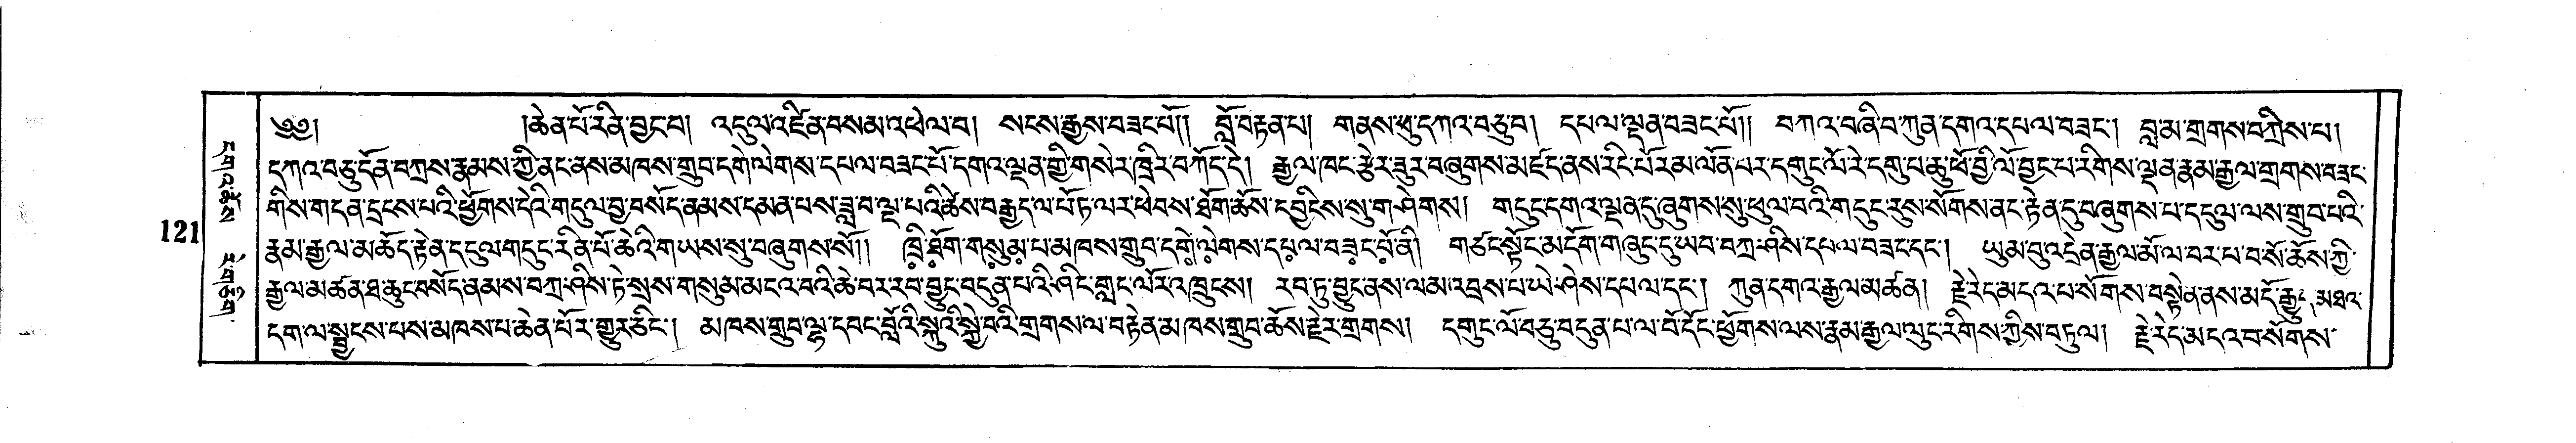 ༄༅། །ཆེན་པོ་རིན་བྱང་བ། འདུལ་འཛིན་བསམ་འཕེལ་བ། སངས་རྒྱས་བཟང་པོ།། བློ་བརྟན་པ། གནས་ཕུ་དཀའ་བཅུ་བ། དཔལ་ལྡན་བཟང་པོ།། བཀའ་བཞི་བ་ཀུན་དགའ་དཔལ་བཟང་། བླ་མ་གྲགས་བཀྲིས་པ།
དཀའ་བཅུ་དོན་བཀྲས་རྣམས་ཀྱི་ནང་ནས་མཁས་གྲུབ་དགེ་ལེགས་དཔལ་བཟང་པོ་དགའ་ལྡན་གྱི་གསེར་ཁྲིར་བཀོད་དེ། རྒྱལ་ཁང་རྩེར་ཟུར་བཞུགས་མཛད་ནས་རིང་པོར་མ་ལོན་པར་དགུང་ལོ་རེ་དགུ་པ་ཆུ་ཕོ་བྱི་ལོ་བྱང་པ་རིགས་ལྡན་རྣམ་རྒྱལ་གྲགས་བཟང་
གིས་གདན་དྲངས་པའི་ཕྱོགས་དེའི་གདུལ་བྱ་བསོད་ནམས་དམན་པས་ཟླ་བ་ལྔ་པའི་ཚེས་བརྒྱད་ལ་པོ་ཏ་ལར་ཕེབས་ཐོག་ཆོས་དབྱིངས་སུ་གཤེགས། གདུང་དགའ་ལྡན་དུ་ཞུགས་སུ་ཕུལ་བའི་གདུང་རུས་སོགས་ནང་རྟེན་དུ་བཞུགས་པ་དངུལ་ལས་གྲུབ་པའི་
རྣམ་རྒྱལ་མཆོད་རྟེན་དངུལ་གདུང་རིན་པོ་ཆེའི་གཡས་སུ་བཞུགས་སོ།། ཁྲི་ཐོག་གསུམ་པ་མཁས་གྲུབ་དགེ་ལེགས་དཔལ་བཟང་པོ་ནི། གཙང་སྟོང་མདོག་གཞུང་དུ་ཡབ་བཀྲ་ཤིས་དཔལ་བཟང་དང་། ཡུམ་བུ་འདྲེན་རྒྱལ་མོ་ལ་བར་པ་བ་སོ་ཆོས་ཀྱི་
རྒྱལ་མཚན་ཐ་ཆུང་བསོད་ནམས་བཀྲ་ཤིས་ཏེ་སྲས་གསུམ་མངའ་བའི་ཆེ་བར་རབ་བྱུང་བདུན་པའི་ཤིང་གླང་ལོར་འཁྲུངས། རབ་ཏུ་བྱུང་ནས་ལམ་འབྲས་པ་ཡེ་ཤེས་དཔལ་དང་། ཀུན་དགའ་རྒྱལ་མཚན། རྗེ་རེད་མདའ་པ་སོགས་བསྟེན་ནས་མདོ་རྒྱུད་མཐའ་
དག་ལ་སྦྱངས་པས་མཁས་པ་ཆེན་པོར་གྱུར་ཅིང་། མཁས་གྲུབ་ལྷ་དབང་བློའི་སྐུའི་སྐྱེ་བའི་གྲགས་ལ་བརྟེན་མཁས་གྲུབ་ཆོས་རྗེར་གྲགས། དགུང་ལོ་བཅུ་བདུན་པ་ལ་བོ་དོང་ཕྱོགས་ལས་རྣམ་རྒྱལ་ལུང་རིགས་ཀྱིས་བཏུལ། རྗེ་རེད་མདའ་བ་སོགས་
121